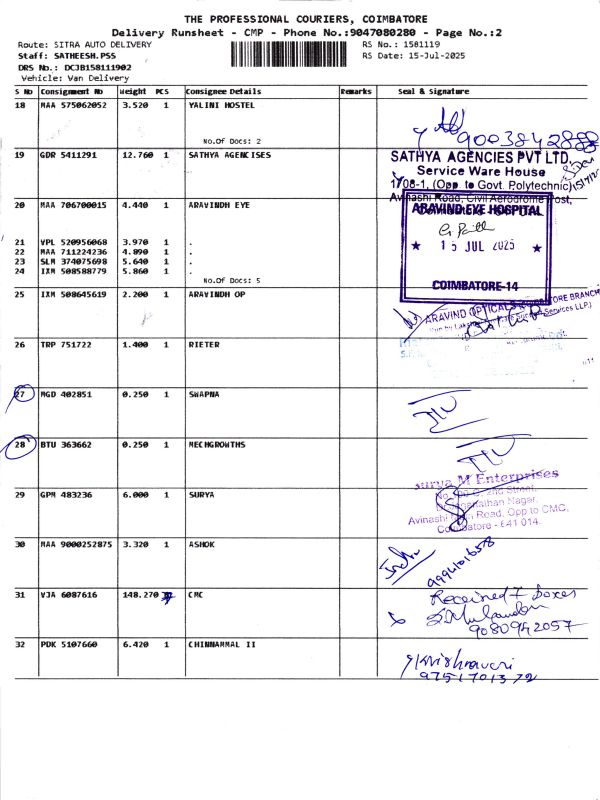 THE PROFESSIONAL COURIERS, COIMBATORE
Delivery Runsheet - CMP - Phone No.:9047080280 - Page No.:2
Route: SITRA AUTO DELIVERY RS No.: 1581119
Staff: SATHEESH.PSS RS Date: 15-Jul-2025
DRS No.: DCJB158111902
Vehicle: Van Delivery
S No Consignment No Weight PCS Consignee Details Remarks Seal & Signature
18 MAA 575062052 3.520 1 YALINI HOSTEL
No.Of Docs: 2
9003842888
19 GDR 5411291 12.760 1 SATHYA AGENCISES
SATHYA AGENCIES PVT LTD,
Service Ware House
1708-1, (Opp to Govt. Polytechnic)
Avinashi Road, Civil Aerodrome Post,
20 MAA 706700015 4.440 1 ARAVINDH EYE
ARAVIND EYE HOSPITAL
21 VPL 520956068 3.970 1 .
★ 15 JUL 2025 ★
22 MAA 711224236 4.890 1 .
23 SLM 374075698 5.640 1 .
24 IXM 508588779 5.860 1 .
No.Of Docs: 5
COIMBATORE-14
25 IXM 508645619 2.200 1 ARAVINDH OP
ARAVIND OPTICALS
Services LLP.)
26 TRP 751722 1.400 1 RIETER
27 MGD 402851 0.250 1 SWAPNA
28 BTU 363662 0.250 1 MECHGROWTHS
29 GPM 483236 6.000 1 SURYA
Surya M Enterprises
2nd Street,
Nagar,
Avinashi Road, Opp to CMC,
Coimbatore - 641 014.
30 MAA 9000252875 3.320 1 ASHOK
31 VJA 6087616 148.270 7 CMC
Received 7 boxes
9080942057
32 PDK 5107660 6.420 1 CHINNAMMAL II
9751701372